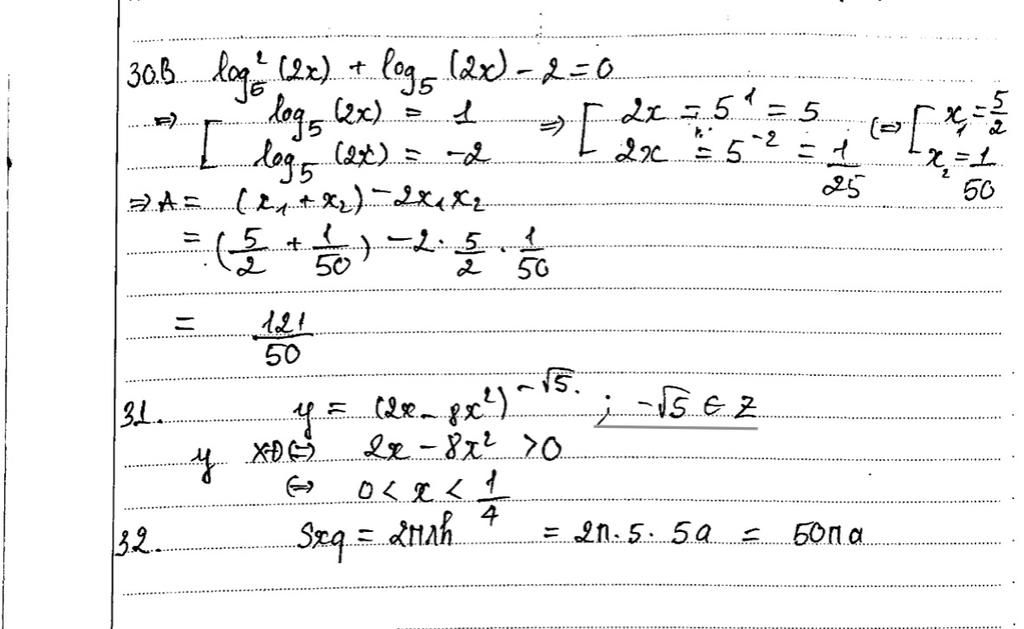 30.B log₅²(2x) + log₅(2x) - 2 = 0
=> [ log₅(2x) = 1 => [ 2x = 5¹ = 5 (=> [ x₁ = 5/2
log₅(2x) = -2 2x = 5⁻² = 1/25 x₂ = 1/50
=> A = (x₁ + x₂) - 2x₁x₂
= (5/2 + 1/50) - 2 · 5/2 · 1/50
= 121/50
31. y = (2x - 8x²)^(-√5) ; -√5 ∈ Z
y XĐ <=> 2x - 8x² > 0
<=> 0 < x < 1/4
32. Sxq = 2πrh = 2π.5.5a = 50πa